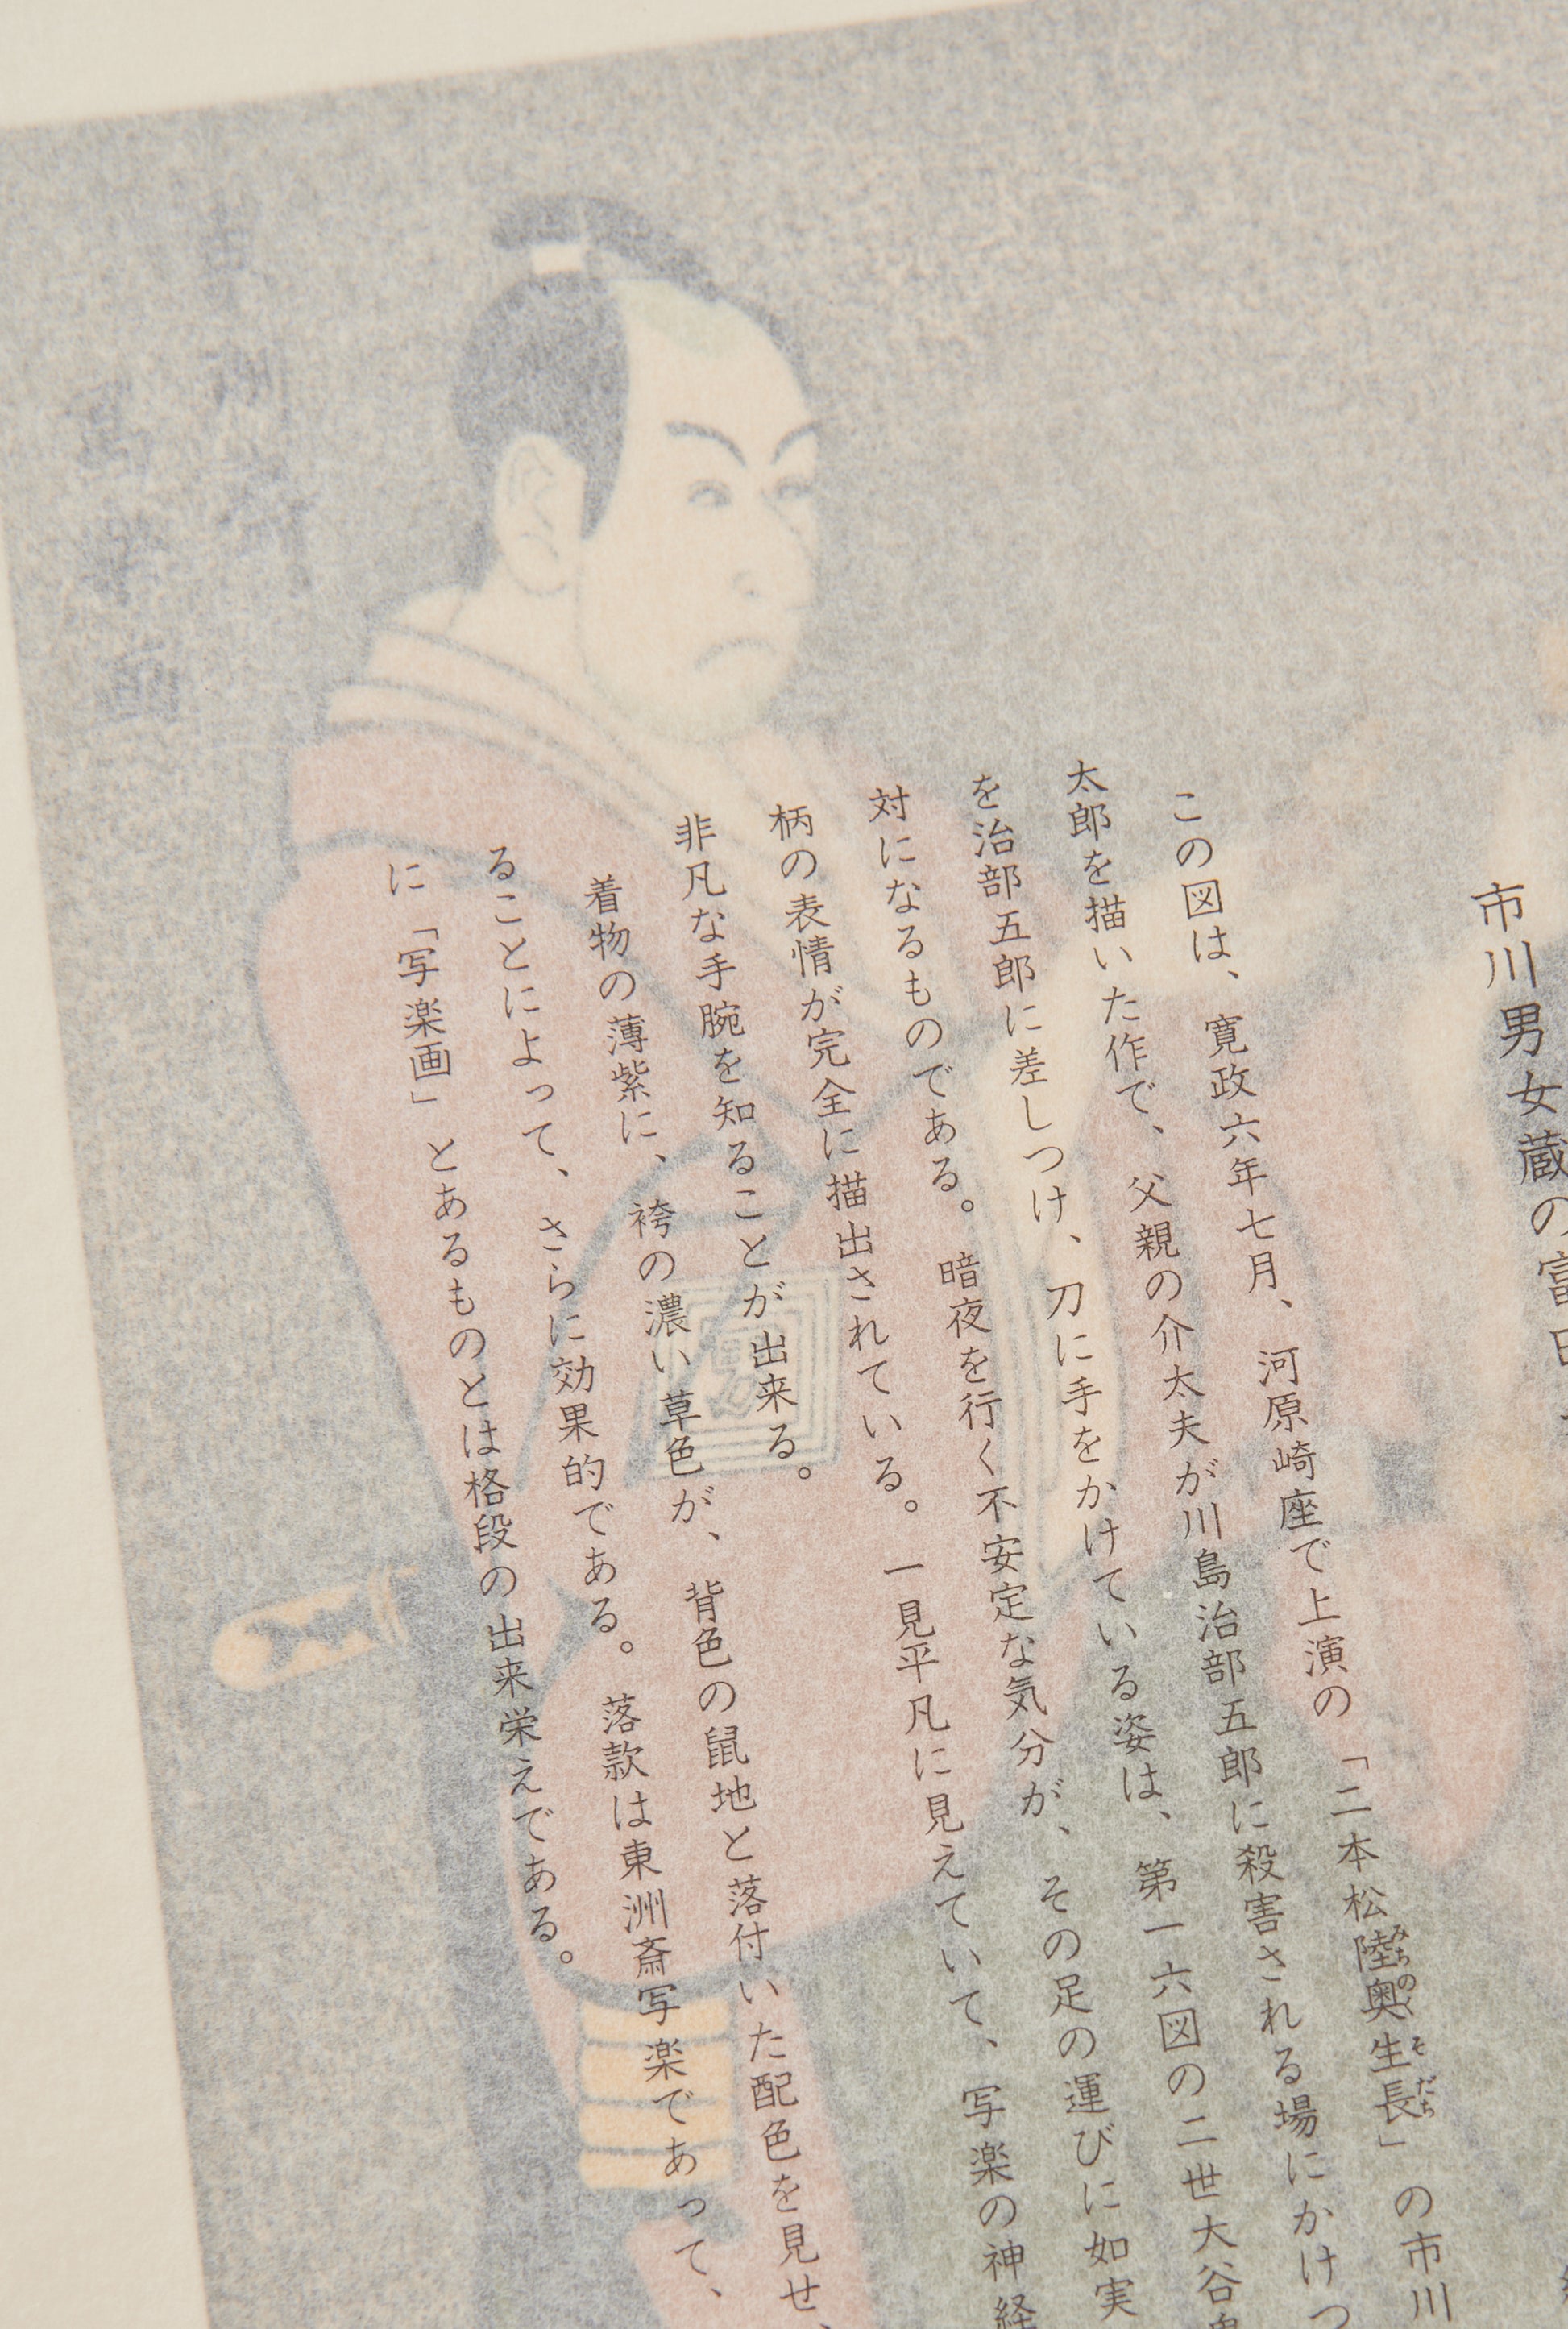 市川男女蔵の富田
この図は、寛政六年七月、河原崎座で上演の「二本松陸奥生長」の市川
みちのくそだち
太郎を描いた作で、父親の介太夫が川島治部五郎に殺害される場にかけつ
を治部五郎に差しつけ、刀に手をかけている姿は、第一六図の二世大谷鬼
対になるものである。暗夜を行く不安定な気分が、その足の運びに如実
柄の表情が完全に描出されている。一見平凡に見えていて、写楽の神経
非凡な手腕を知ることが出来る。
着物の薄紫に、袴の濃い草色が、背色の鼠地と落付いた配色を見せ、
ることによって、さらに効果的である。落款は東洲斎写楽であって、
に「写楽画」とあるものとは格段の出来栄えである。